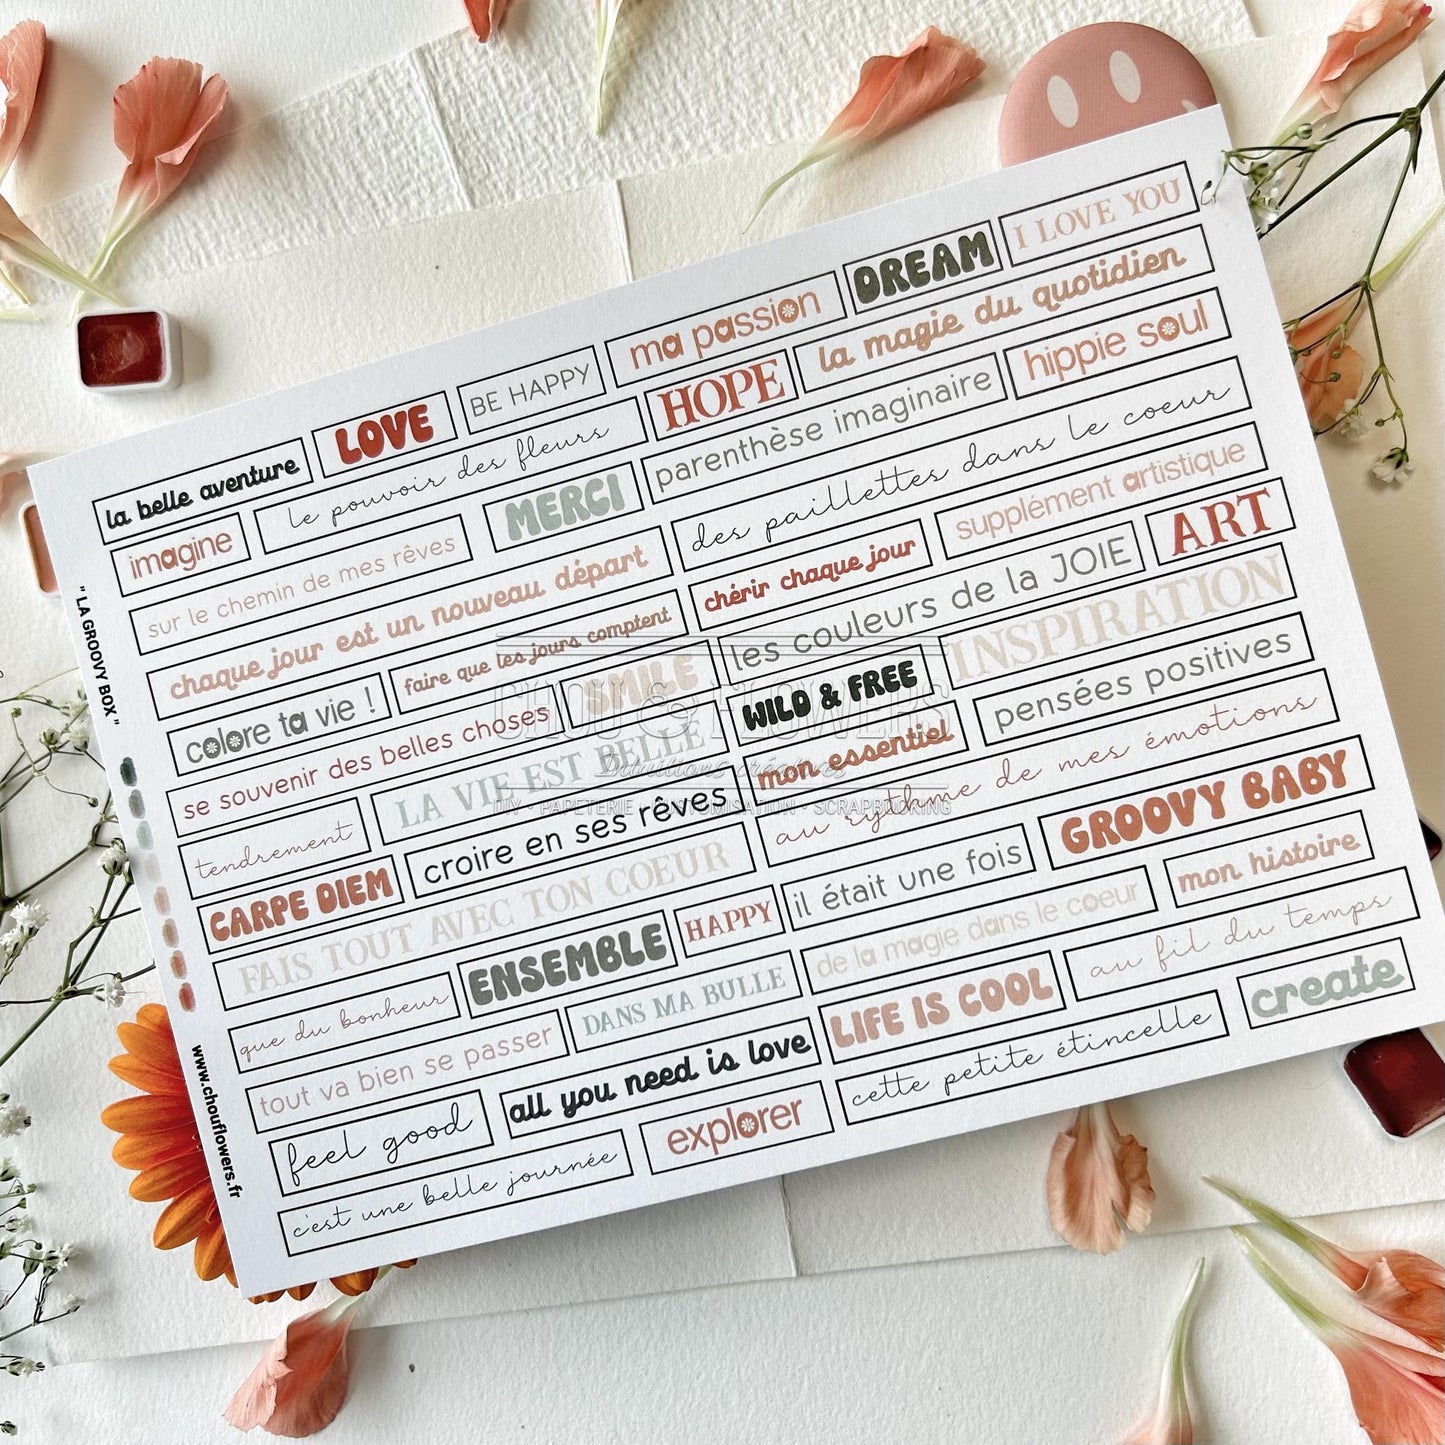 la belle aventure
LOVE
BE HAPPY
ma passion
DREAM
I LOVE YOU
imagine
le pouvoir des fleurs
HOPE
la magie du quotidien
sur le chemin de mes rêves
MERCI
parenthèse imaginaire
hippie soul
chaque jour est un nouveau départ
des paillettes dans le coeur
colore ta vie !
faire que les jours comptent
chérir chaque jour
supplément artistique
se souvenir des belles choses
SMILE
les couleurs de la JOIE
ART
tendrement
LA VIE EST BELLE
WILD & FREE
INSPIRATION
CARPE DIEM
croire en ses rêves
mon essentiel
pensées positives
FAIS TOUT AVEC TON COEUR
au rythme de mes émotions
que du bonheur
ENSEMBLE
HAPPY
il était une fois
GROOVY BABY
tout va bien se passer
DANS MA BULLE
de la magie dans le coeur
mon histoire
feel good
all you need is love
LIFE IS COOL
au fil du temps
c'est une belle journée
explorer
cette petite étincelle
create
" LA GROOVY BOX "
www.chouflowers.fr
CHOU & FLOWERS
Intuitions créatives
DIY - PAPETERIE - CUSTOMISATION - SCRAPBOOKING